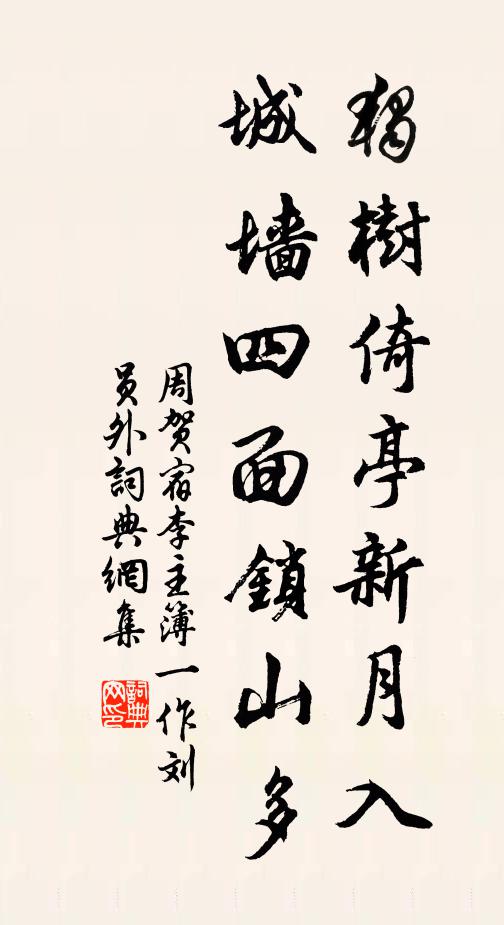 獨樹倚亭新月入
城墙四面鎖山多
周贺宿李主簿一作刘
员外詞典網集
詞典网印